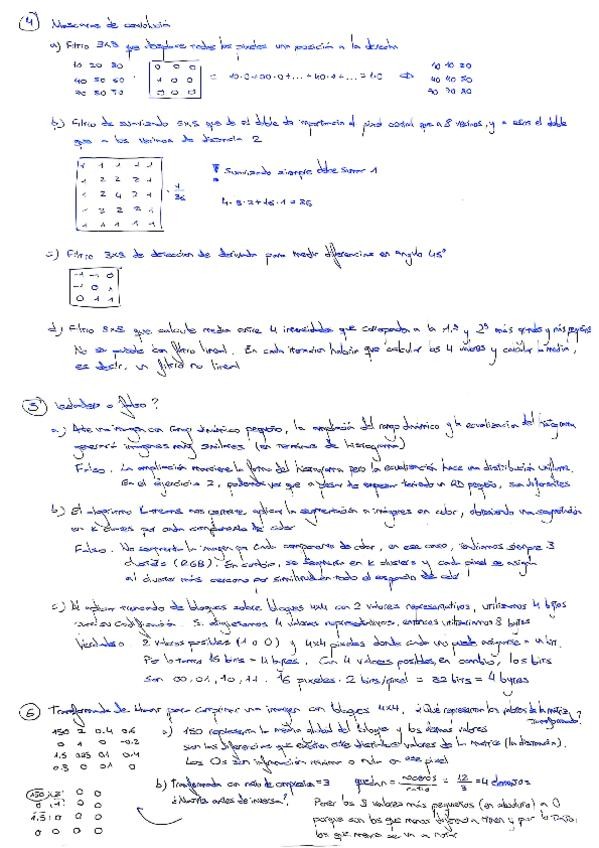 4 Máscaras de convolución
a) Filtro 3x3 que desplace todos los píxeles una posición a la derecha
10 20 30 0 0 0 10 10 20
40 50 60 · 1 0 0 = 10·0+20·0+...+40·1+... = 40 ⇒ 40 40 50
70 80 90 0 0 0
b) Filtro de suavizado 5x5 que de el doble de importancia al pixel central que a 8 vecinos, y a estos el doble
que a los vecinos de distancia 2
1 1 1 1 1
1 2 2 2 1 Suavizado siempre debe sumar 1
1 2 4 2 1 · 1/36
1 2 2 2 1 4+8·2+16·1=36
1 1 1 1 1
c) Filtro 3x3 de detección de derivada para medir diferencias en ángulo 45°
-1 -1 0
-1 0 1
0 1 1
d) Filtro 3x3 que calcule media entre 4 intensidades que correspondan a la 1ª y 2ª más grandes y más pequeñas
No se puede con filtro lineal. En cada iteración habría que calcular los 4 valores y calcular la media,
es decir, un filtro no lineal
5 Verdadero o falso?
a) Ante una imagen con rango dinámico pequeño, la ampliación del rango dinámico y la ecualización del histograma
generará imágenes muy similares (en términos de histograma)
Falso. La ampliación mantiene la forma del histograma pero la ecualización hace una distribución uniforme.
En el ejercicio 2, podemos ver que a pesar de empezar teniendo un RD pequeño, son diferentes
b) El algoritmo K-means nos permite aplicar la segmentación a imágenes en color, obteniendo una segmentación
en K clases por cada componente de color
Falso. No segmenta la imagen por cada componente de color, en ese caso, tendríamos siempre 3
clusters (RGB). En cambio, se segmenta en K clusters y cada píxel se asigna
al cluster más cercano por similitud en todo el espacio de color
c) Al aplicar truncado de bloques sobre bloques 4x4 con 2 valores representativos, utilizamos 4 bytos
para su codificación. Si elegimos 4 valores representativos, entonces utilizaremos 8 bytes
Verdadero 2 valores posibles (1 o 0) y 4x4 píxeles donde cada uno puede asignarse a un bit.
Por lo tanto 16 bits = 4 bytes. Con 4 valores posibles, en cambio, los bits
son 00, 01, 10, 11. 16 píxeles · 2 bits/pixel = 32 bits = 4 bytes
6 Transformada de Haar para comprimir una imagen con bloques 4x4. ¿Qué representan los valores de la matriz transformada?
150 2 0.4 0.6 a) 150 representa la media global del bloque y los demás valores
0 1 0 -0.2 son las diferencias que existen entre distintos valores de la matriz (la distancia).
1.5 0.25 0.1 0.4 Los 0s son información mínima o nula en ese píxel
0.3 0 0.1 0
b) Transformada con ratio de compresión = 3 quedan = numeros/ratio = 12/3 = 4 elementos
150 2 0 0 ¿Matriz antes de inversa? Poner los 8 valores más pequeños (en absoluto) a 0
0 1 0 0 porque son los que menor diferencia tienen y por lo tanto,
1.5 0 0 0 los que menos se va a notar
0 0 0 0